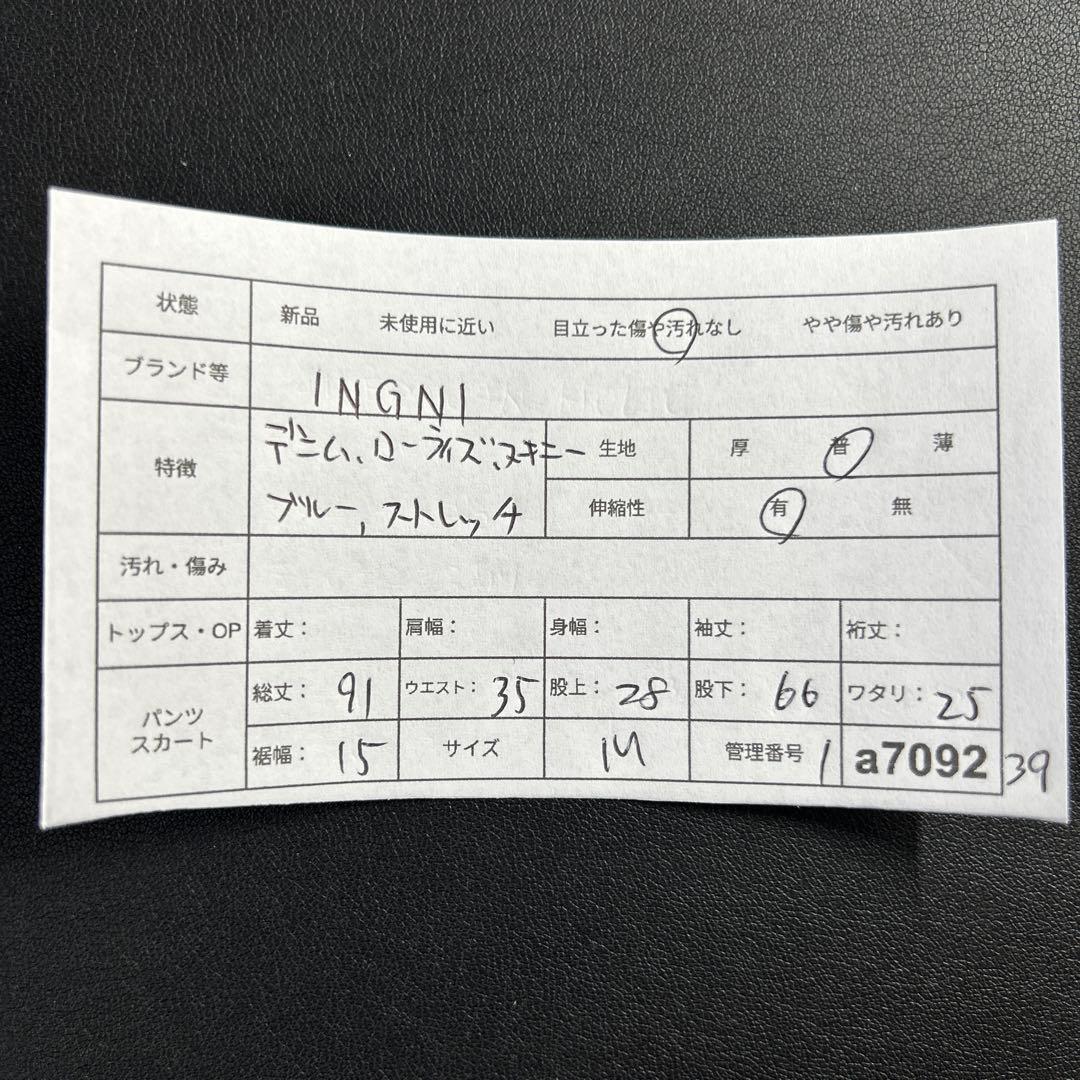 状態 新品 未使用に近い 目立った傷や汚れなし やや傷や汚れあり
ブランド等 INGNI
特徴 デニム、ローライズ、スキニー 生地 厚 普 薄
ブルー、ストレッチ 伸縮性 有 無
汚れ・傷み
トップス・OP 着丈： 肩幅： 身幅： 袖丈： 裄丈：
パンツ スカート 総丈： 91 ウエスト： 35 股上： 28 股下： 66 ワタリ： 25
裾幅： 15 サイズ M 管理番号 1 a7092 39